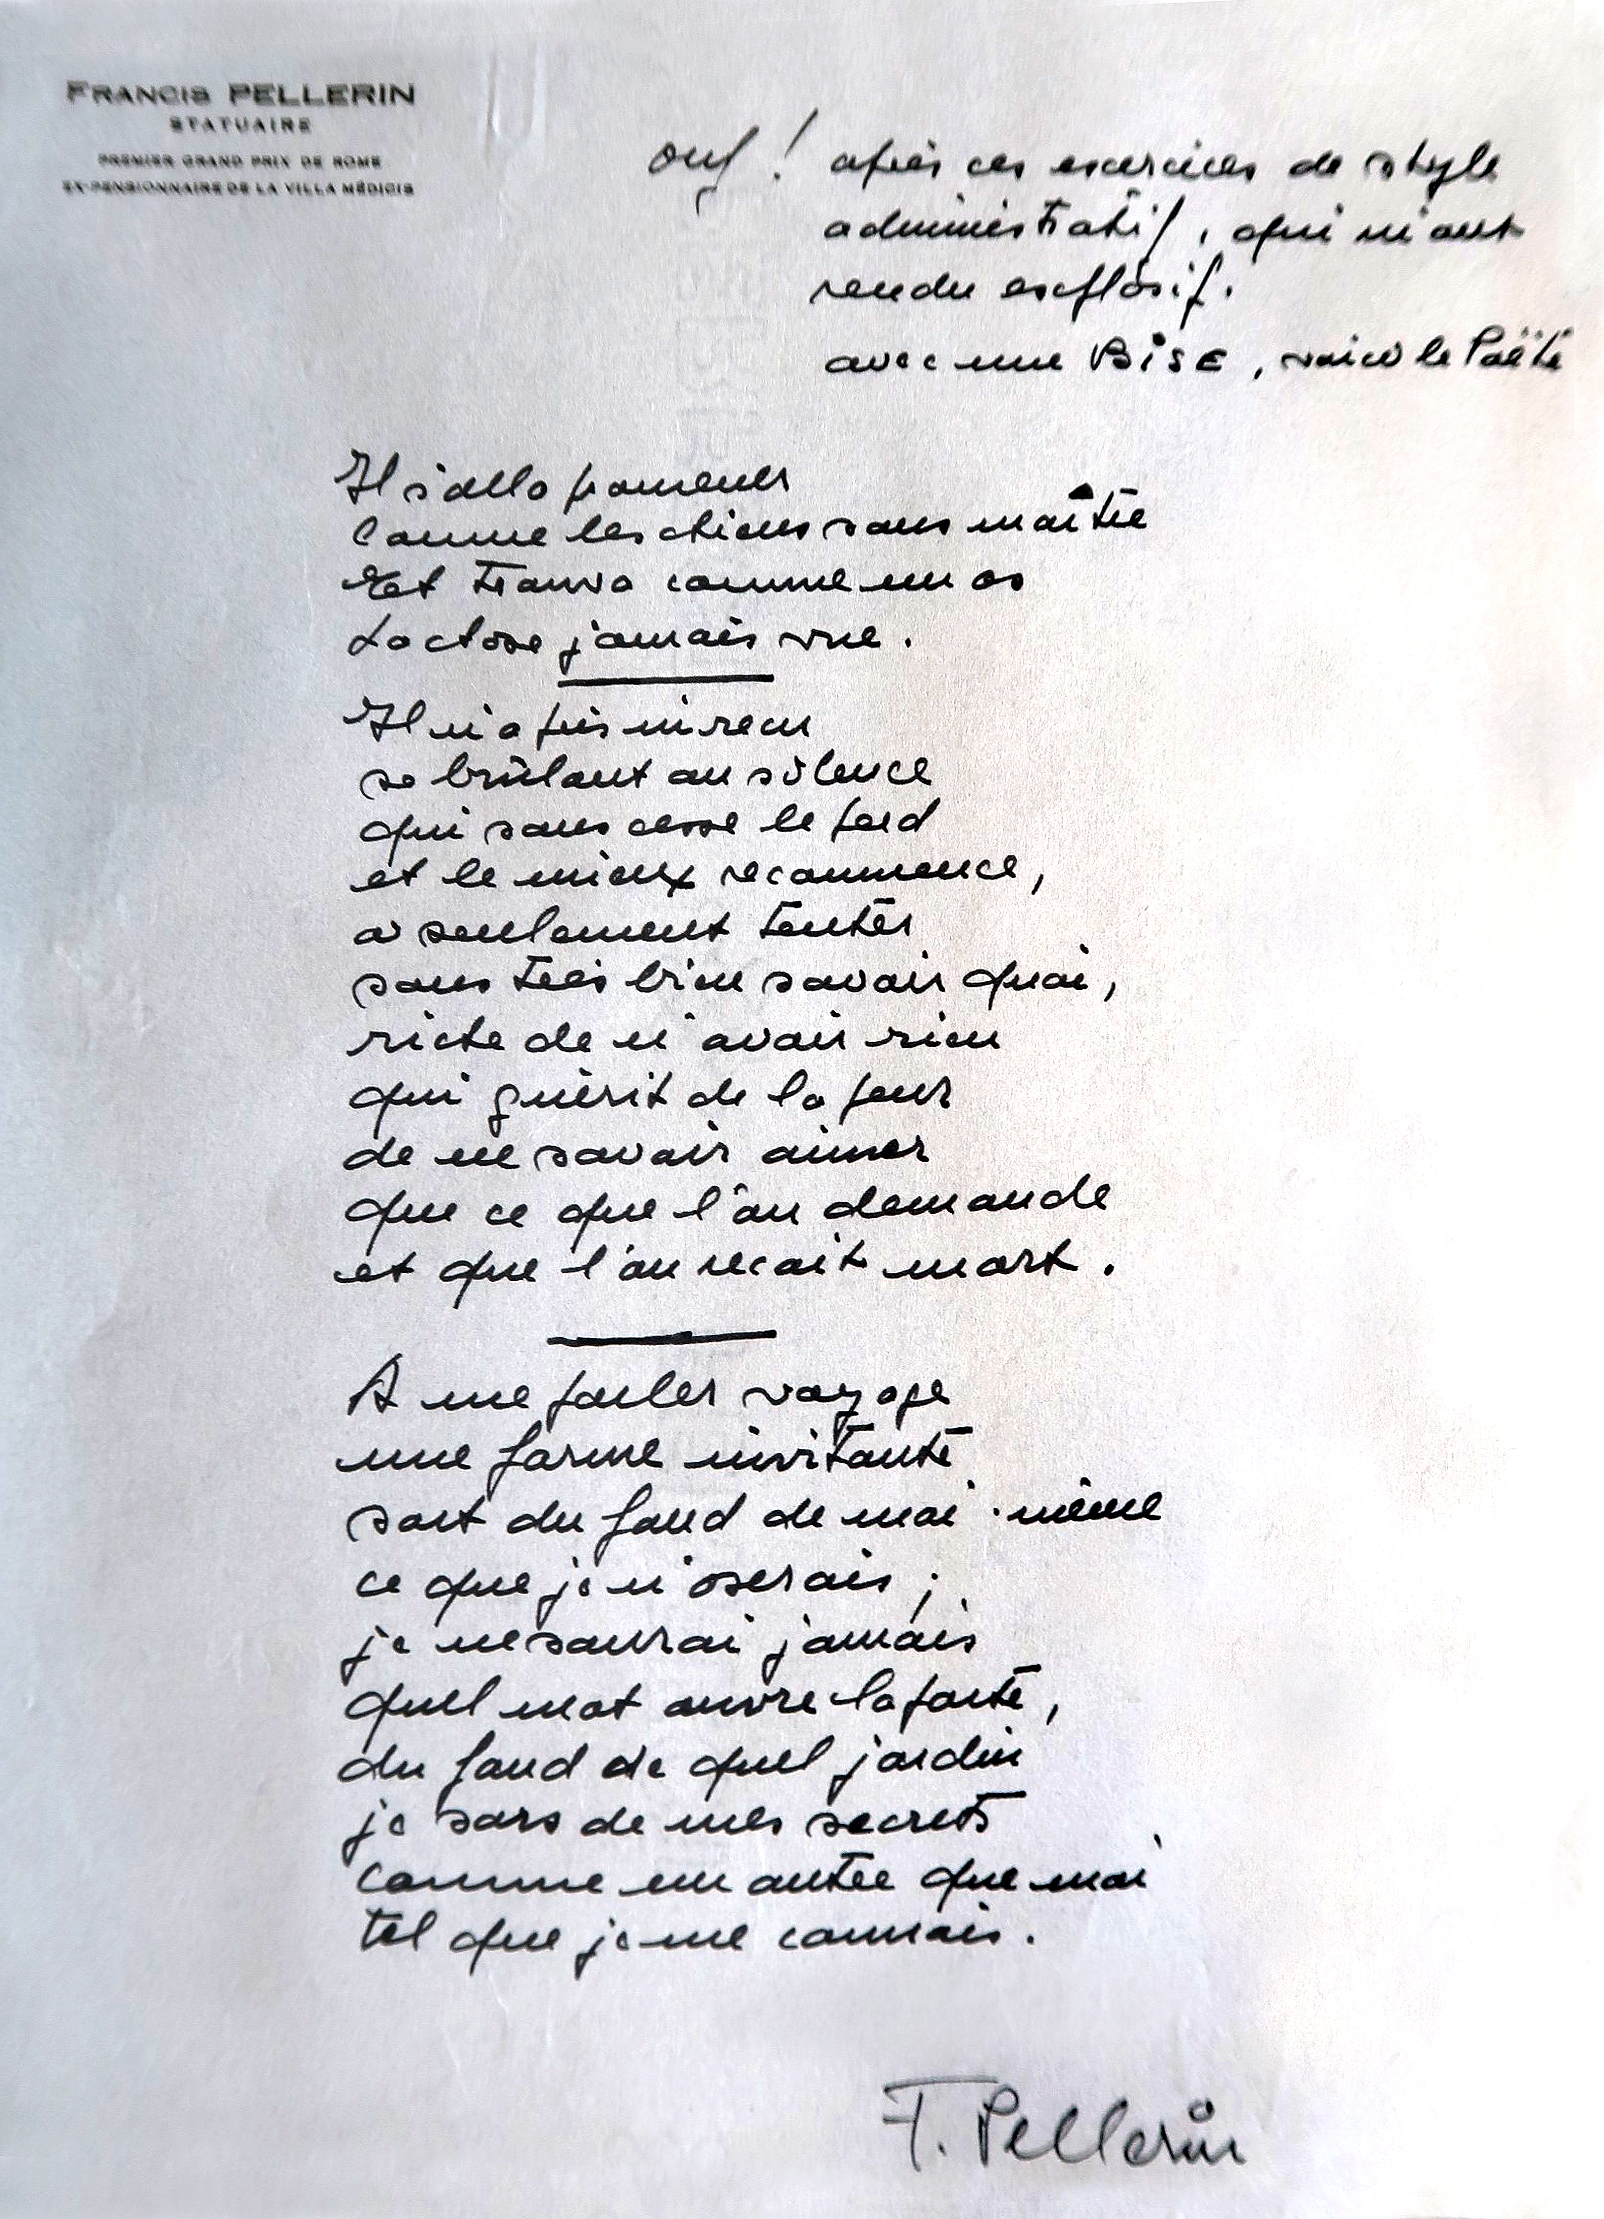 FRANCIS PELLERIN
STATUAIRE
PREMIER GRAND PRIX DE ROME
EX-PENSIONNAIRE DE LA VILLA MÉDICIS
ouf ! après ces exercices de style
administratif, qui m'ont
rendu explosif.
avec une BISE, voici le Poëte
Il s'alla promener
comme les chiens sans maître
Et trouva comme un os
La chose jamais vue.
Il n'a pris ni reçu
se brûlant au silence
qui sans cesse le perd
et le mieux recommence,
a seulement tenter
sans très bien savoir quoi,
riche de n'avoir rien
qui guérit de la peur
de ne savoir aimer
que ce que l'on demande
et que l'on reçoit mort.
A me parler voyage
une forme invitante
sort du fond de moi-même
ce que je n'oserais ;
je ne saurai jamais
quel mot ouvre la porte,
du fond de quel jardin
je sors de mes secrets
comme un autre que moi
tel que je me connais.
F. Pellerin